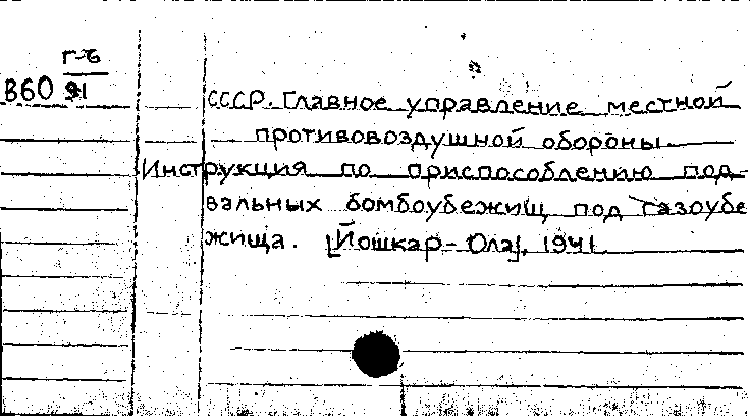 г-ъ
В60 91
СССР. Главное управление местной
противовоздушной обороны.
Инструкция по приспособлению под-
вальных бомбоубежищ под газоубе
жища. [Йошкар-Ола], 1941.